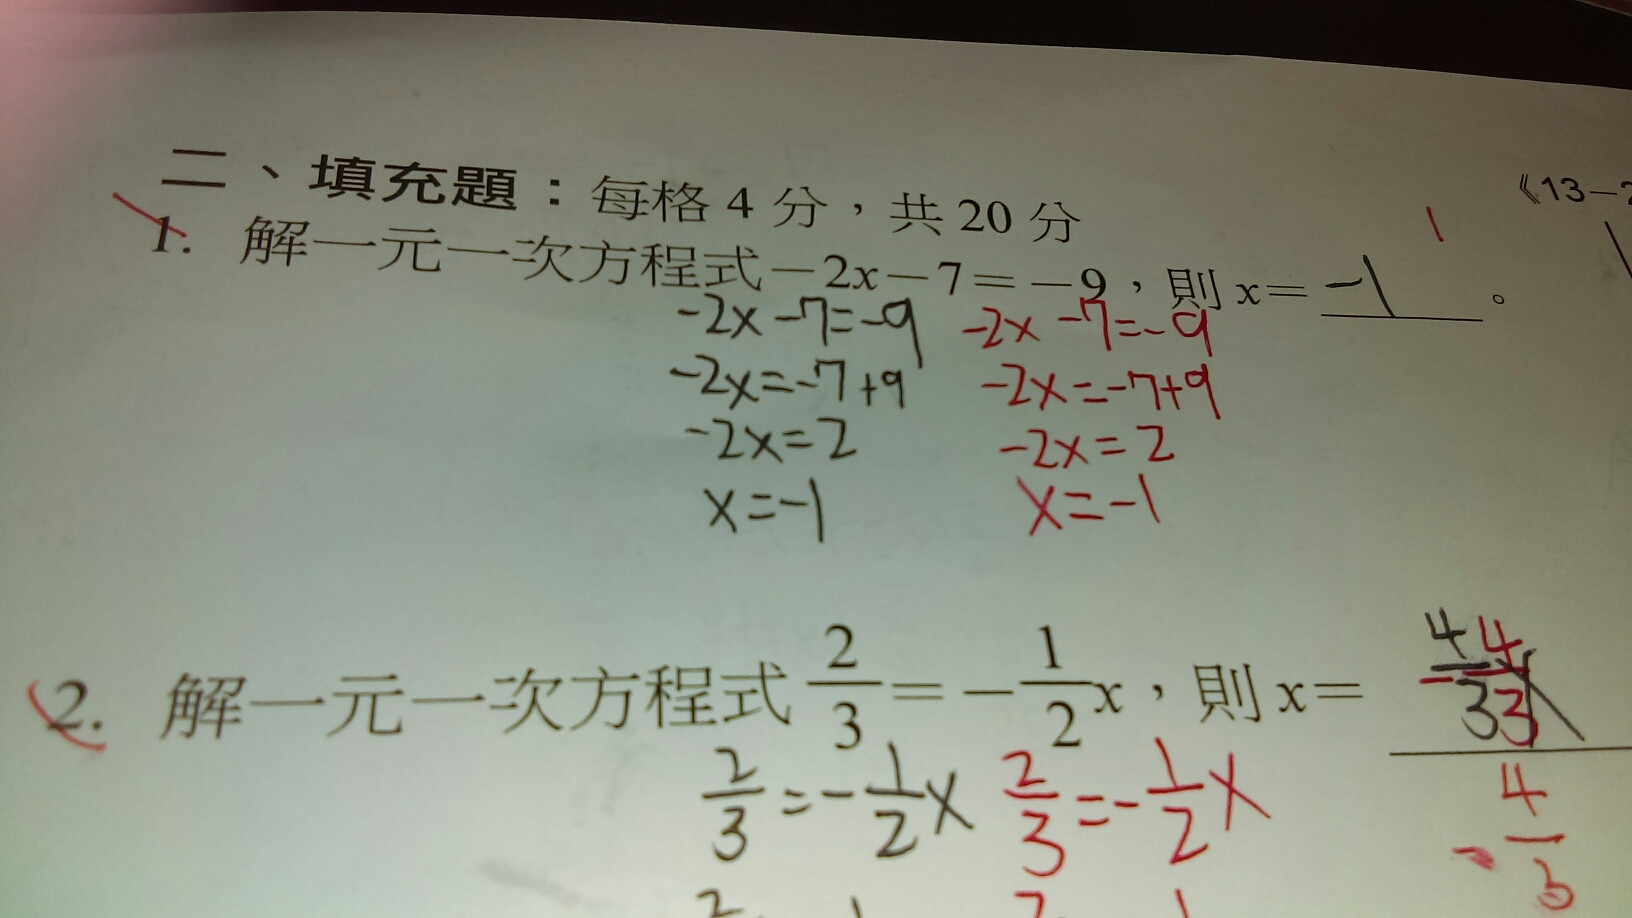 《13-2
二、填充題：每格 4 分，共 20 分
1
1. 解一元一次方程式-2x-7=-9，則 x= -1 。
-2x-7=-9 -2x-7=-9
-2x=-7+9 -2x=-7+9
-2x=2 -2x=2
x=-1 x=-1
2. 解一元一次方程式 2/3 = -1/2 x，則 x=
2/3 = -1/2 x 2/3 = -1/2 x
-4/3